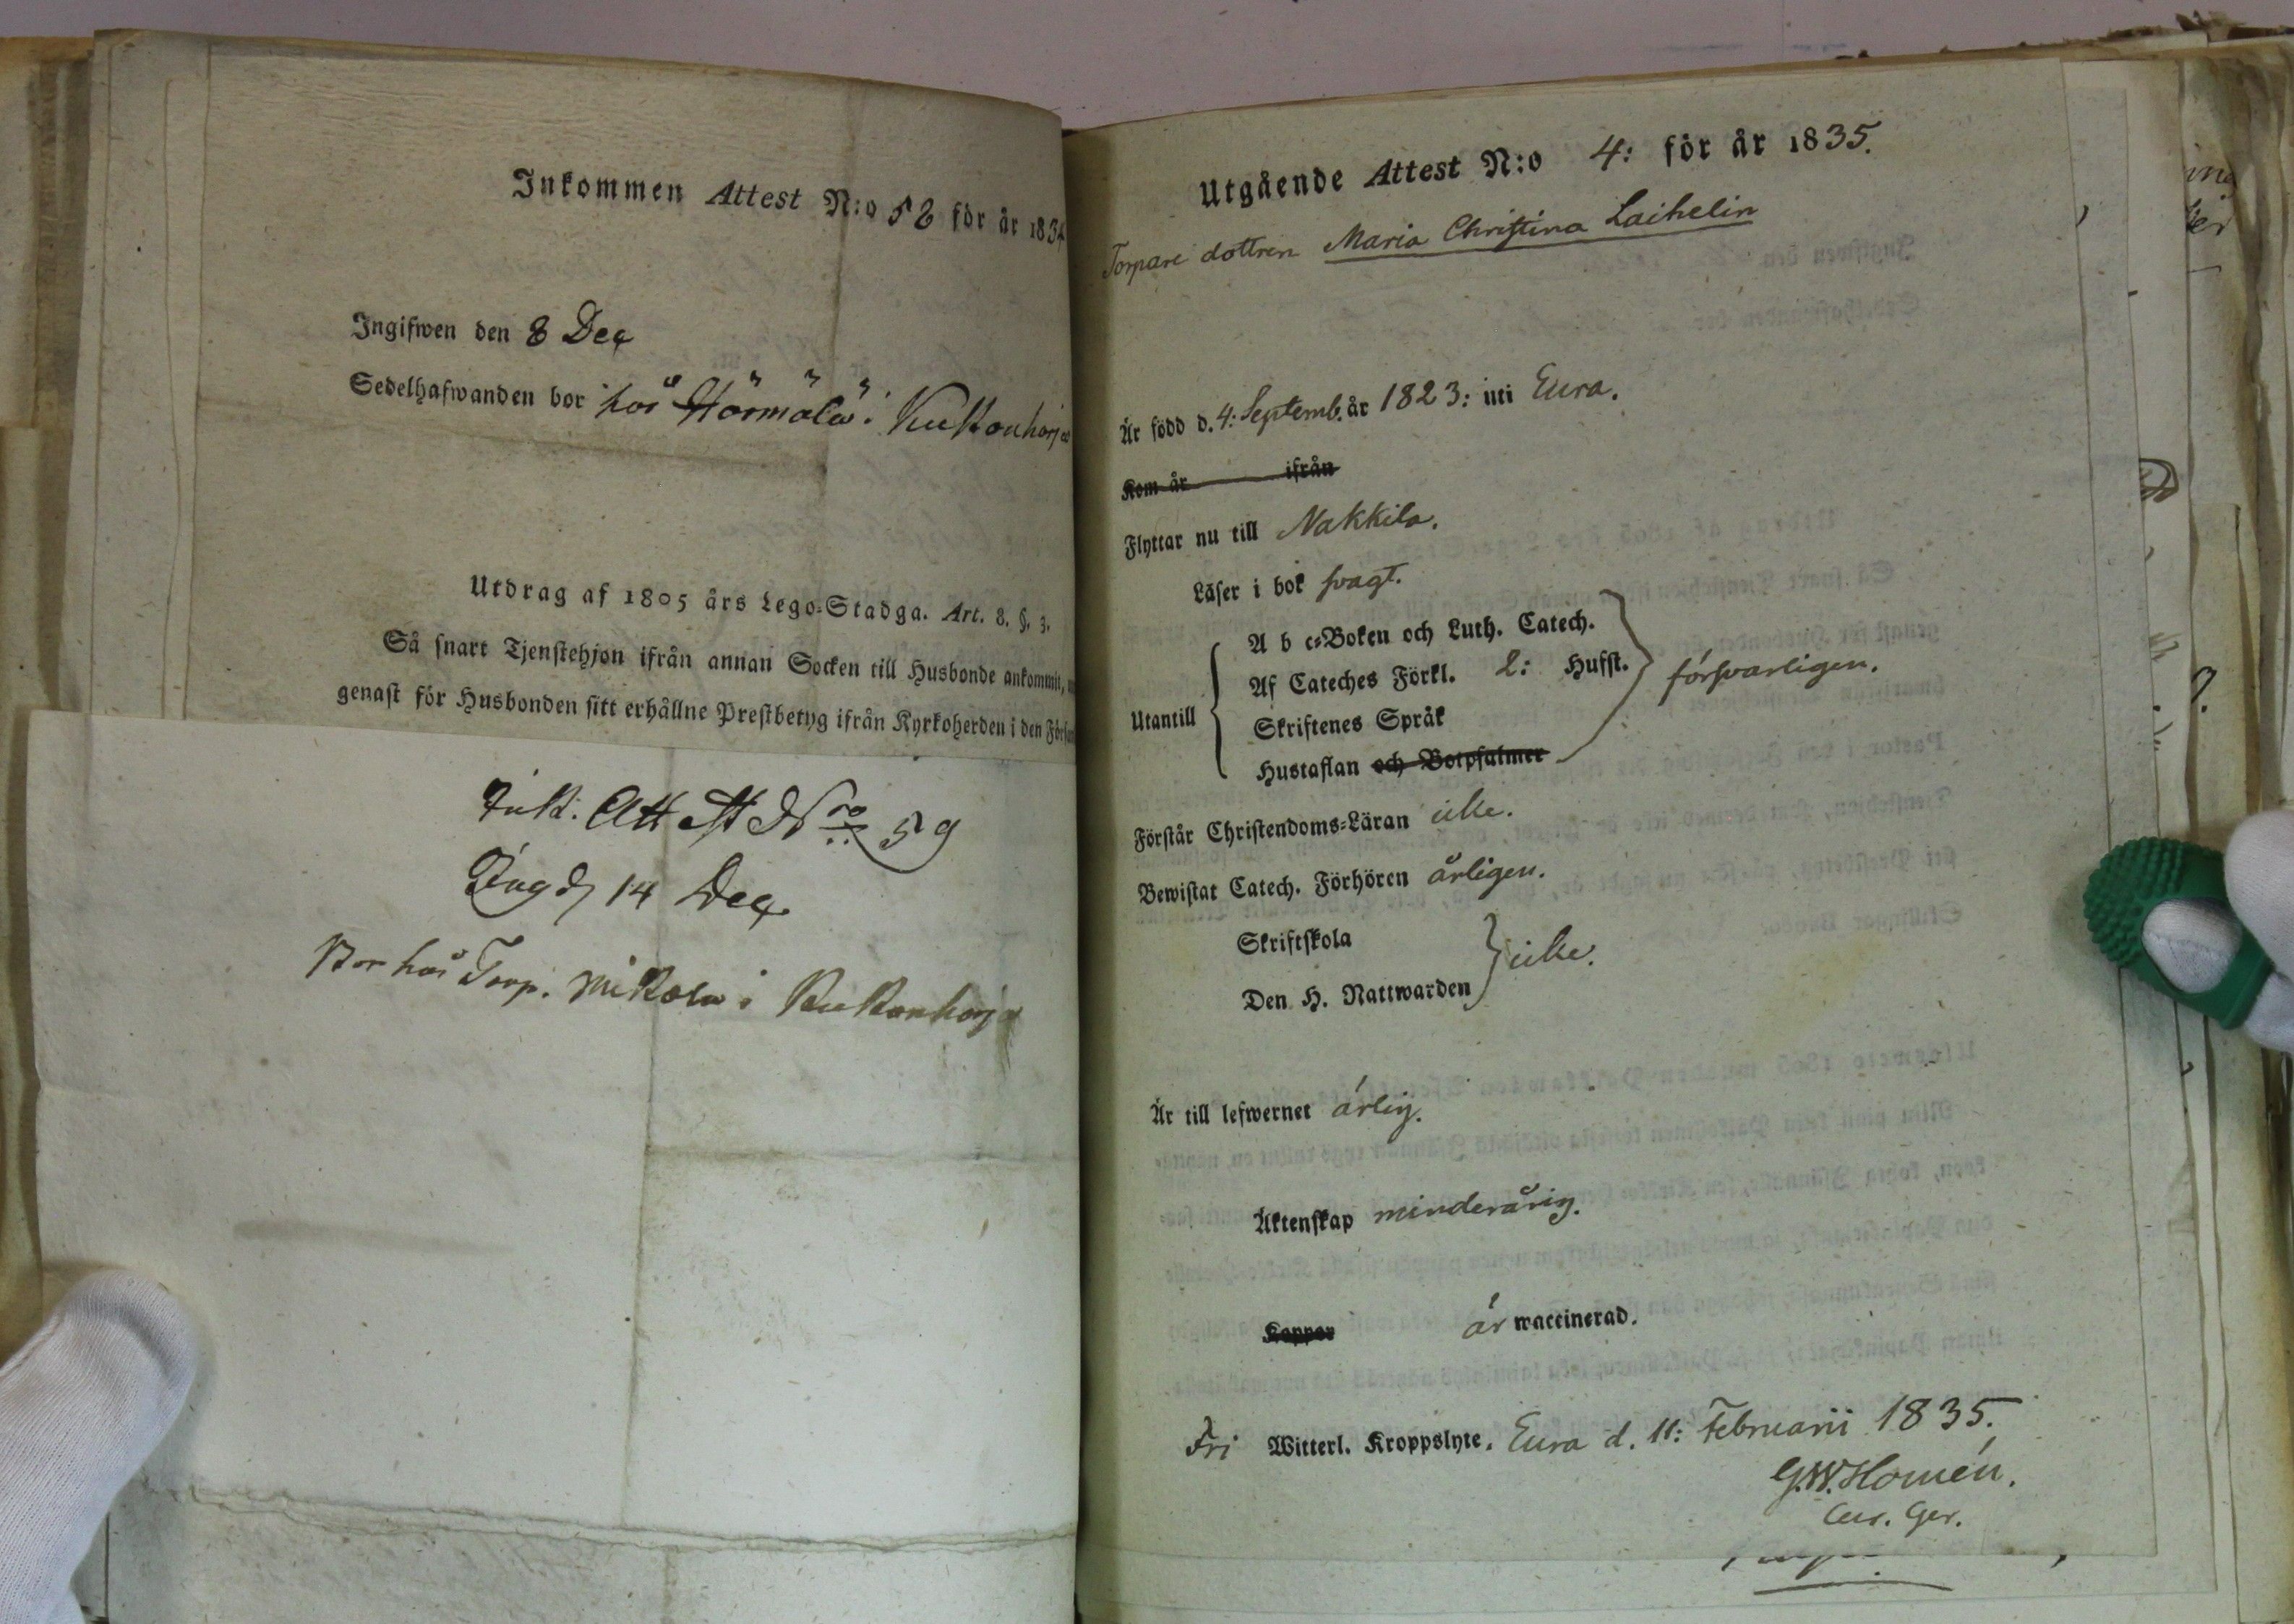 Inkommen Attest N:o 58 för år 1834
Ingifwen den 8 Dec
Sedelhafwanden bor hos Härmälä i Kukonharja
Utdrag af 1805 års Lego-Stadga. Art. 8. §. 3.
Så snart Tjenstehjon ifrån annan Socken till Husbonde ankommit,
genast för Husbonden sitt erhållne Prestbetyg ifrån Kyrkoherden i den
Ink. Attest Nro 59
Ing d 14 Dec
Bor hos Torp. Mikola i Kukonharja
Utgående Attest N:o 4: för år 1835.
Torpare dottren Maria Christina Laihelin
Är född d. 4: Septemb. år 1823: uti Eura.
Kom år ifrån
Flyttar nu till Nakkila.
Läser i bok svagt.
Utantill
A b c-Boken och Luth. Catech.
Af Cateches Förkl. 2: Hufst.
Skriftenes Språk
Hustaflan och Botpsalmer
försvarligen.
Förstår Christendoms-Läran icke.
Bewistat Catech. Förhören årligen.
Skriftskola
Den H. Nattwarden
icke.
Är till lefwernet ärlig.
Äktenskap minderårig.
Koppor är waccinerad.
Fri Witterl. Kroppslyte. Eura d. 11: Februarii 1835.
G.W. Homén.
Cur. Ger.